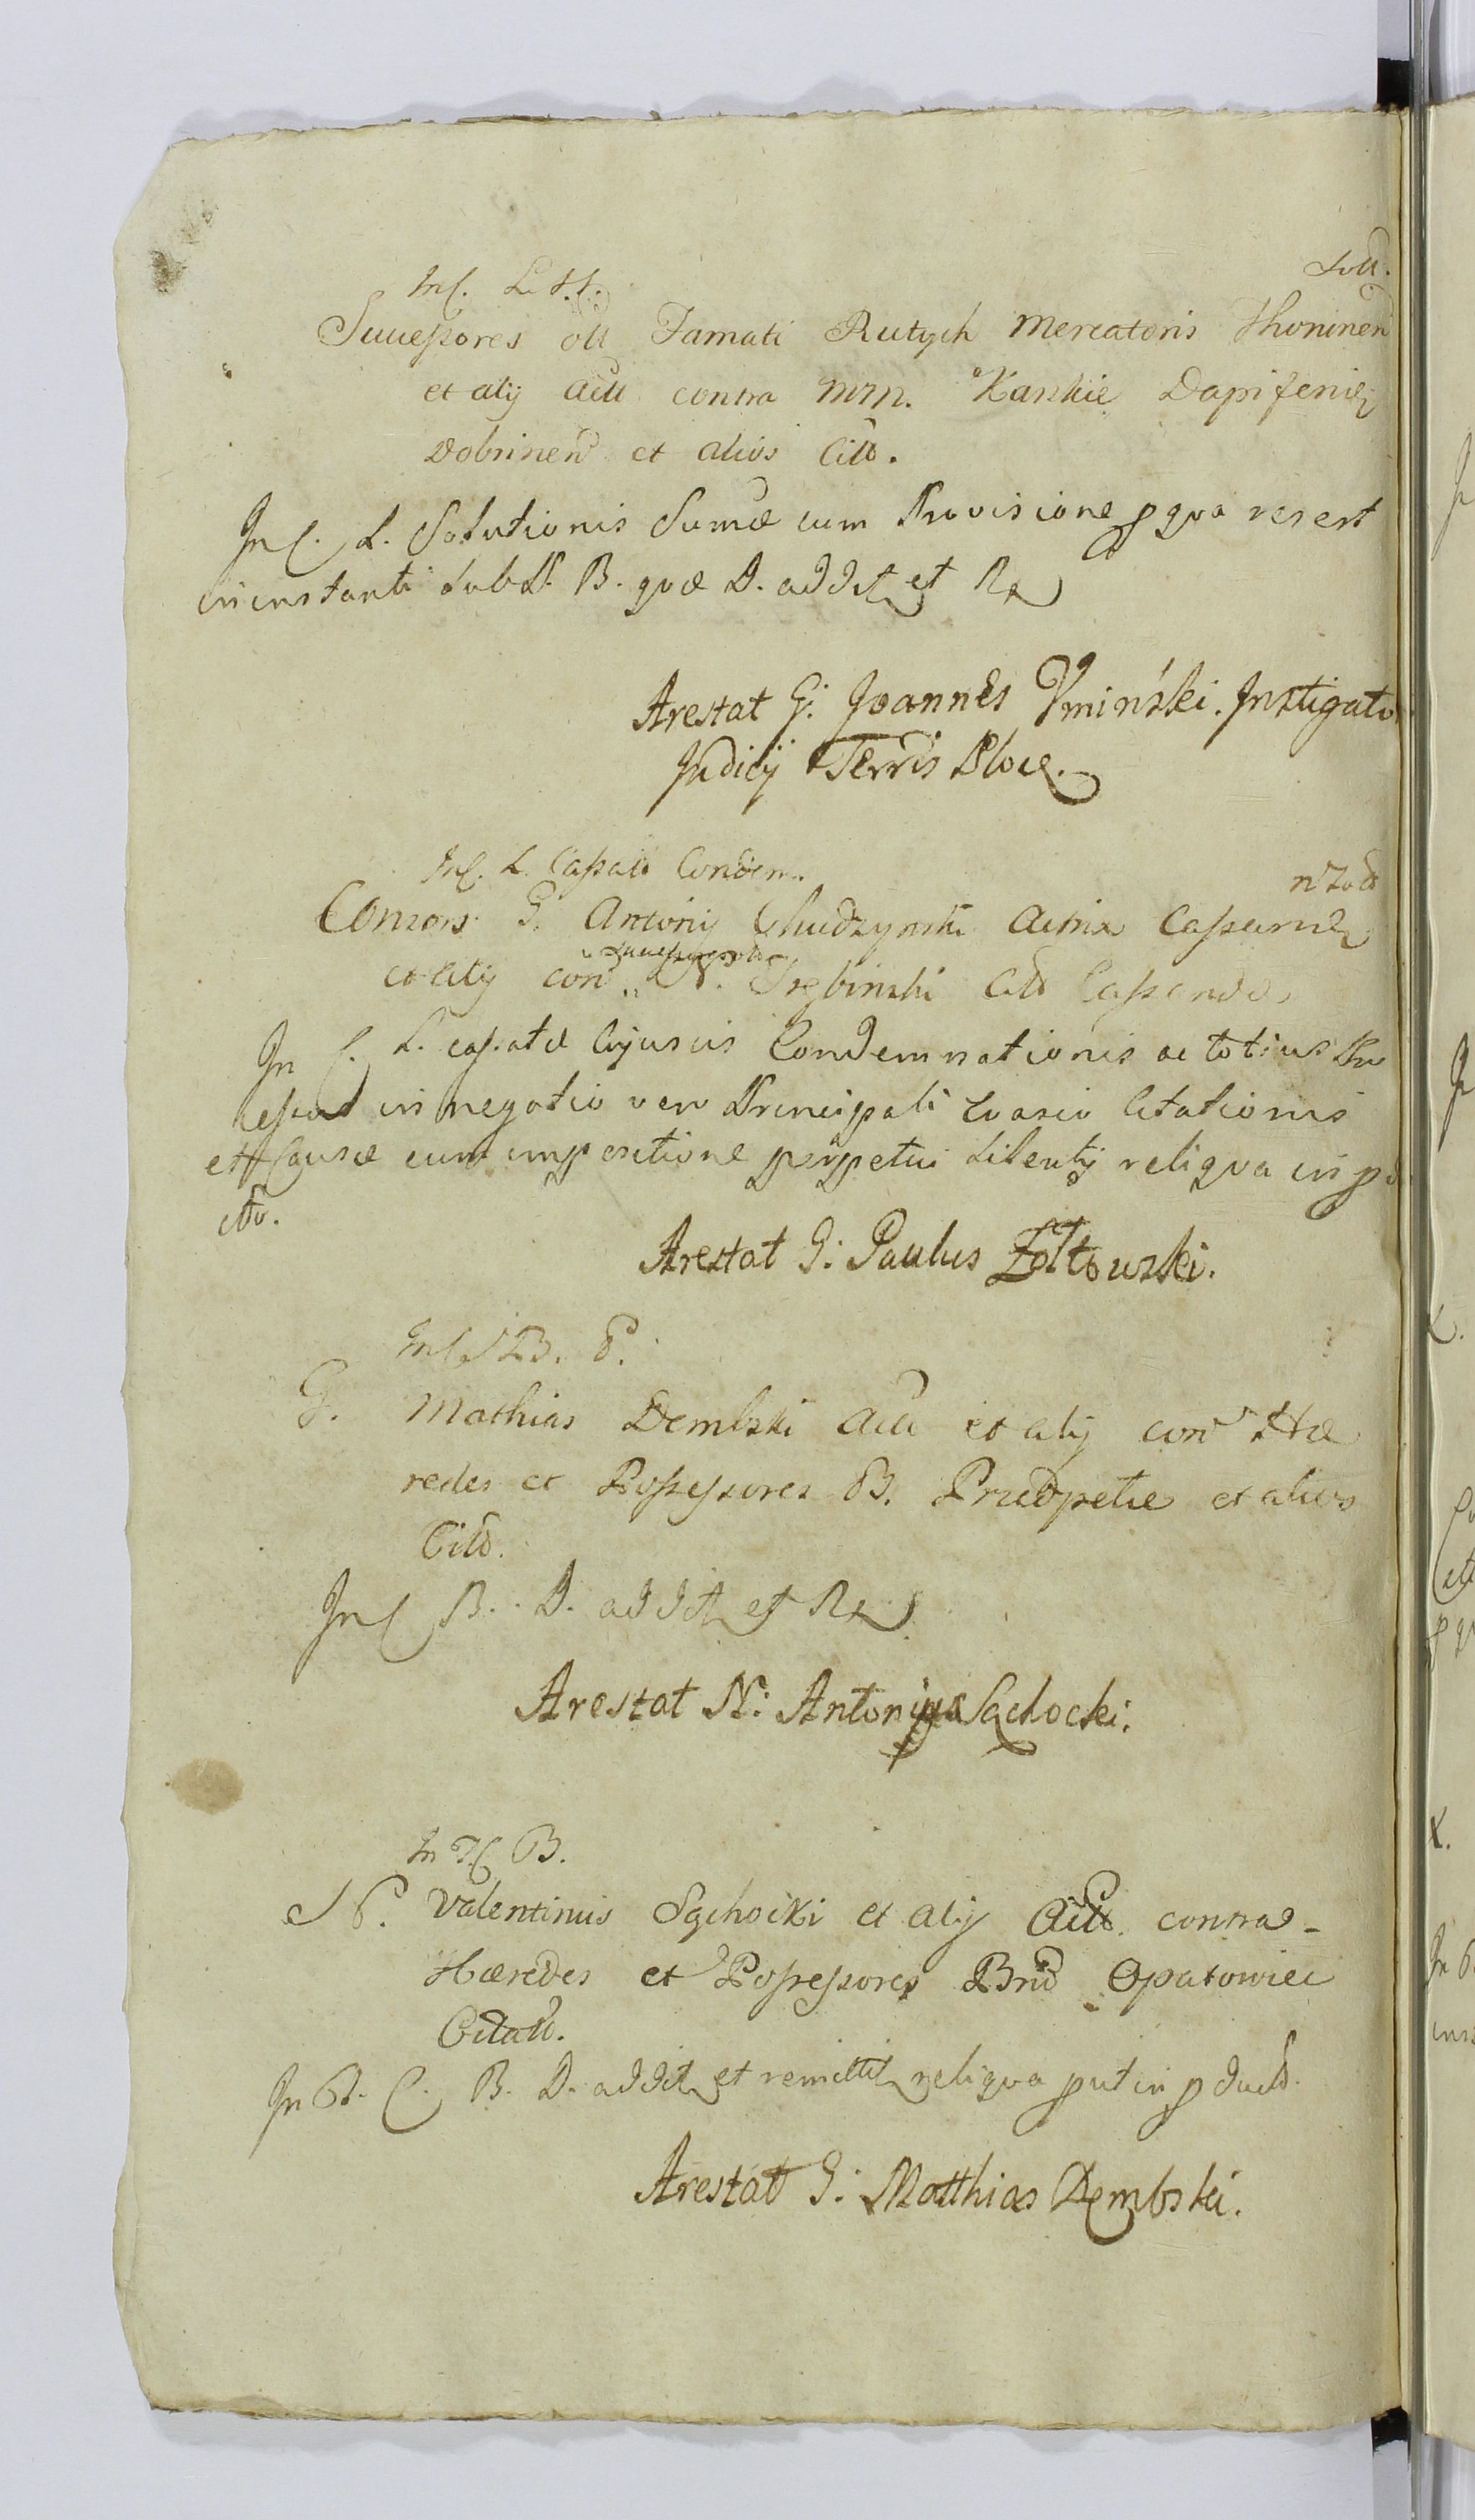 In C. L. S. S. Soll.
Successores oll Famati Rutych Mercatoris Thorunen
et alij Act contra MM. Karskie Dapiferidę
Dobrinen et alios Citt.
In C. L. Solutionis Sumæ cum Provisione p qva res est
in instanti sub L. B. qvæ D. addit et R
Arestat G: Joannes Vmiński. Instigator
Judicij Terris Ploce.
In C. L. Cassatt Condem.
Consors G. Antonij Chudzynski Actrix Cassans
et alij con Successores N. Srebinski Citt Cassandos
In C. L. cassatæ cujusvis Condemnationis ac totius Pro
cessus in negotio vero Principali Evasio Citationis
et Causæ cum impositione perpetui Silentij reliqva in p
cto.
Arestat G: Paulus Żółtowski.
In C B. P.
G. Mathias Dembski Act et alij con Hæ
redes et Possessores B. Prudpetie et alios
Citt.
In C B. D. addit et R
Arestat N: Antonius Sąchocki.
In H C B.
N. Valentinus Sąchocki et alij Act. contra
Hæredes et Possessores Bnd Opatowiec
Citatt.
In P. C. B. D. addit et remittit reliqva put in p duct.
Arestat G: Matthias Dembski.